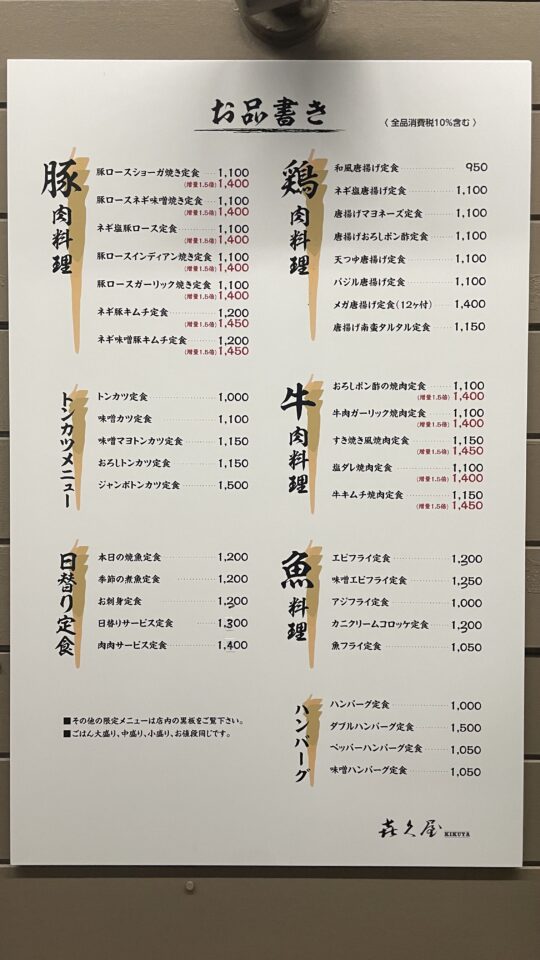 お品書き
〈 全品消費税10%含む 〉
豚肉料理
豚ロースショーガ焼き定食 1,100
(増量1.5倍) 1,400
豚ロースネギ味噌焼き定食 1,100
(増量1.5倍) 1,400
ネギ塩豚ロース定食 1,100
(増量1.5倍) 1,400
豚ロースインディアン焼き定食 1,100
(増量1.5倍) 1,400
豚ロースガーリック焼き定食 1,100
(増量1.5倍) 1,400
ネギ豚キムチ定食 1,200
(増量1.5倍) 1,450
ネギ味噌豚キムチ定食 1,200
(増量1.5倍) 1,450
トンカツメニュー
トンカツ定食 1,000
味噌カツ定食 1,100
味噌マヨトンカツ定食 1,150
おろしトンカツ定食 1,150
ジャンボトンカツ定食 1,500
日替り定食
本日の焼魚定食 1,200
季節の煮魚定食 1,200
お刺身定食 1,200
日替りサービス定食 1,300
肉肉サービス定食 1,400
■その他の限定メニューは店内の黒板をご覧下さい。
■ごはん大盛り、中盛り、小盛り、お値段同じです。
鶏肉料理
和風唐揚げ定食 950
ネギ塩唐揚げ定食 1,100
唐揚げマヨネーズ定食 1,100
唐揚げおろしポン酢定食 1,100
天つゆ唐揚げ定食 1,100
バジル唐揚げ定食 1,100
メガ唐揚げ定食(12ヶ付) 1,400
唐揚げ南蛮タルタル定食 1,150
牛肉料理
おろしポン酢の焼肉定食 1,100
(増量1.5倍) 1,400
牛肉ガーリック焼肉定食 1,100
(増量1.5倍) 1,400
すき焼き風焼肉定食 1,150
(増量1.5倍) 1,450
塩ダレ焼肉定食 1,100
(増量1.5倍) 1,400
牛キムチ焼肉定食 1,150
(増量1.5倍) 1,450
魚料理
エビフライ定食 1,200
味噌エビフライ定食 1,250
アジフライ定食 1,000
カニクリームコロッケ定食 1,200
魚フライ定食 1,050
ハンバーグ
ハンバーグ定食 1,000
ダブルハンバーグ定食 1,500
ペッパーハンバーグ定食 1,050
味噌ハンバーグ定食 1,050
㐂久屋 KIKUYA